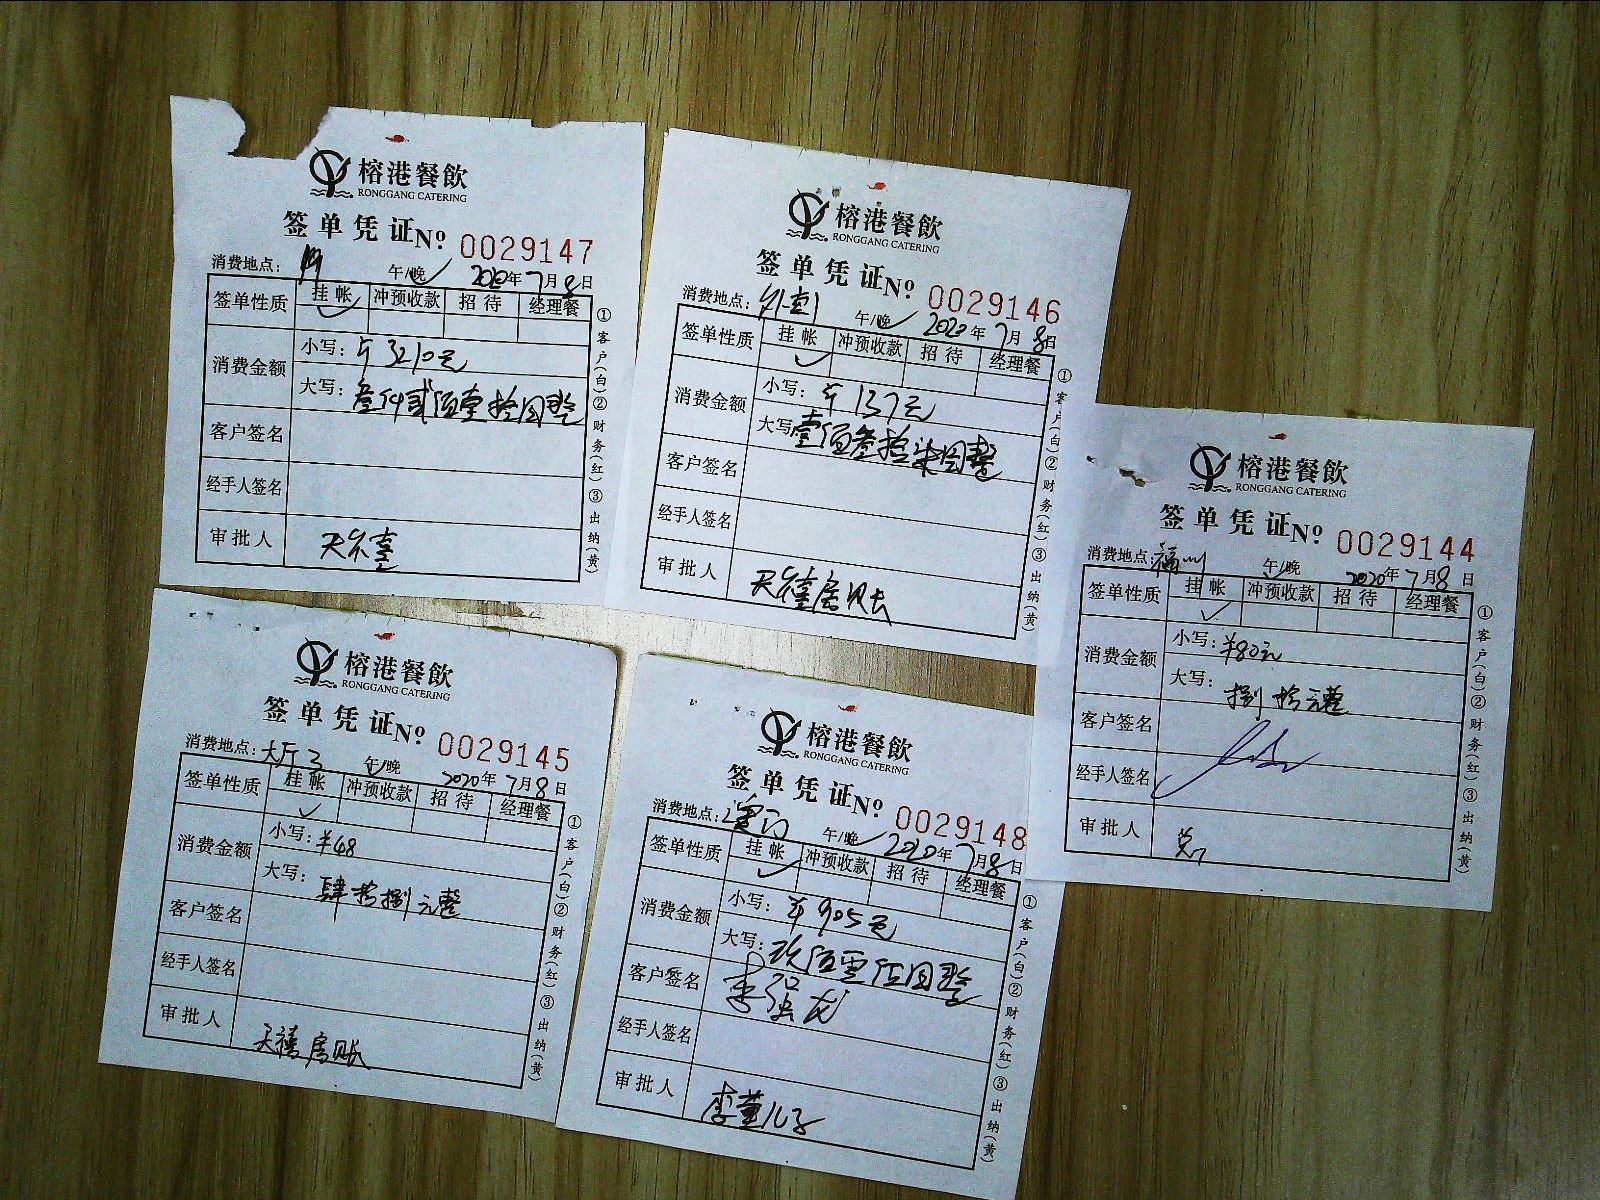 榕港餐飲
RONGGANG CATERING
签单凭证 Nº 0029147
消费地点: 午/晚 2020年7月8日
签单性质 挂帐 冲预收款 招待 经理餐
消费金额 小写: ¥3210元
大写: 叁仟贰佰壹拾圆整
客户签名
经手人签名
审批人
①客户(白)②财务(红)③出纳(黄)
榕港餐飲
RONGGANG CATERING
签单凭证 Nº 0029146
消费地点: 午/晚 2020年7月8日
签单性质 挂帐 冲预收款 招待 经理餐
消费金额 小写: ¥137元
大写: 壹佰叁拾柒圆整
客户签名
经手人签名
审批人
①客户(白)②财务(红)③出纳(黄)
榕港餐飲
RONGGANG CATERING
签单凭证 Nº 0029144
消费地点: 福州 午/晚 2020年7月8日
签单性质 挂帐 冲预收款 招待 经理餐
消费金额 小写: ¥80元
大写: 捌拾元整
客户签名
经手人签名
审批人
①客户(白)②财务(红)③出纳(黄)
榕港餐飲
RONGGANG CATERING
签单凭证 Nº 0029145
消费地点: 大厅3 午/晚 2020年7月8日
签单性质 挂帐 冲预收款 招待 经理餐
消费金额 小写: ¥48
大写: 肆拾捌元整
客户签名
经手人签名
审批人 天禧房账
①客户(白)②财务(红)③出纳(黄)
榕港餐飲
RONGGANG CATERING
签单凭证 Nº 0029148
消费地点: 午/晚 2020年7月8日
签单性质 挂帐 冲预收款 招待 经理餐
消费金额 小写: ¥905元
大写: 玖佰零伍圆整
客户签名 李强龙
经手人签名
审批人 李董儿子
①客户(白)②财务(红)③出纳(黄)